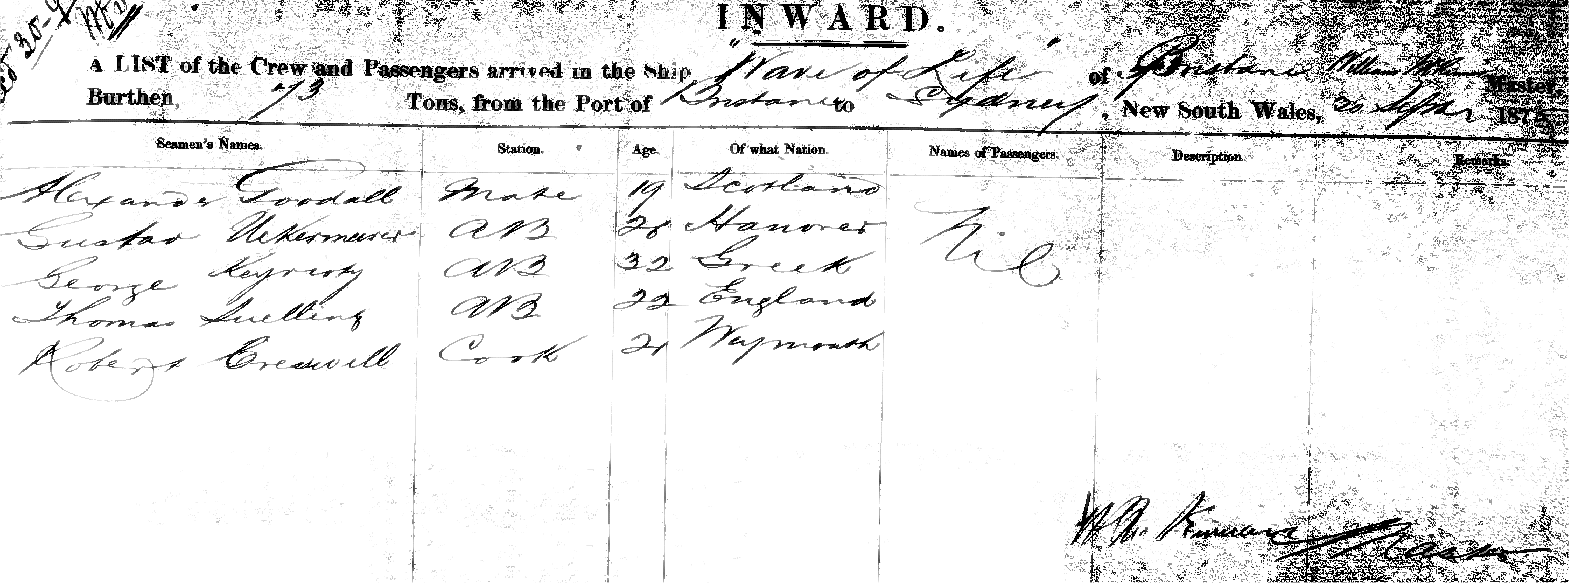 30-9
INWARD.
A LIST of the Crew and Passengers arrived in the Ship "Wave of Life" of Brisbane William Master,
Burthen, 73 Tons, from the Port of Brisbane to Sydney, New South Wales, 30 Septbr 187
Seamen's Names. Station. Age. Of what Nation. Names of Passengers. Description. Remarks.
Alexander Goodall Mate 19 Scotland Nil
Gustav AB 28 Hanover
George AB 32 Greek
Thomas Suelling AB 22 England
Robert Creswell Cook 21 Weymouth
Master